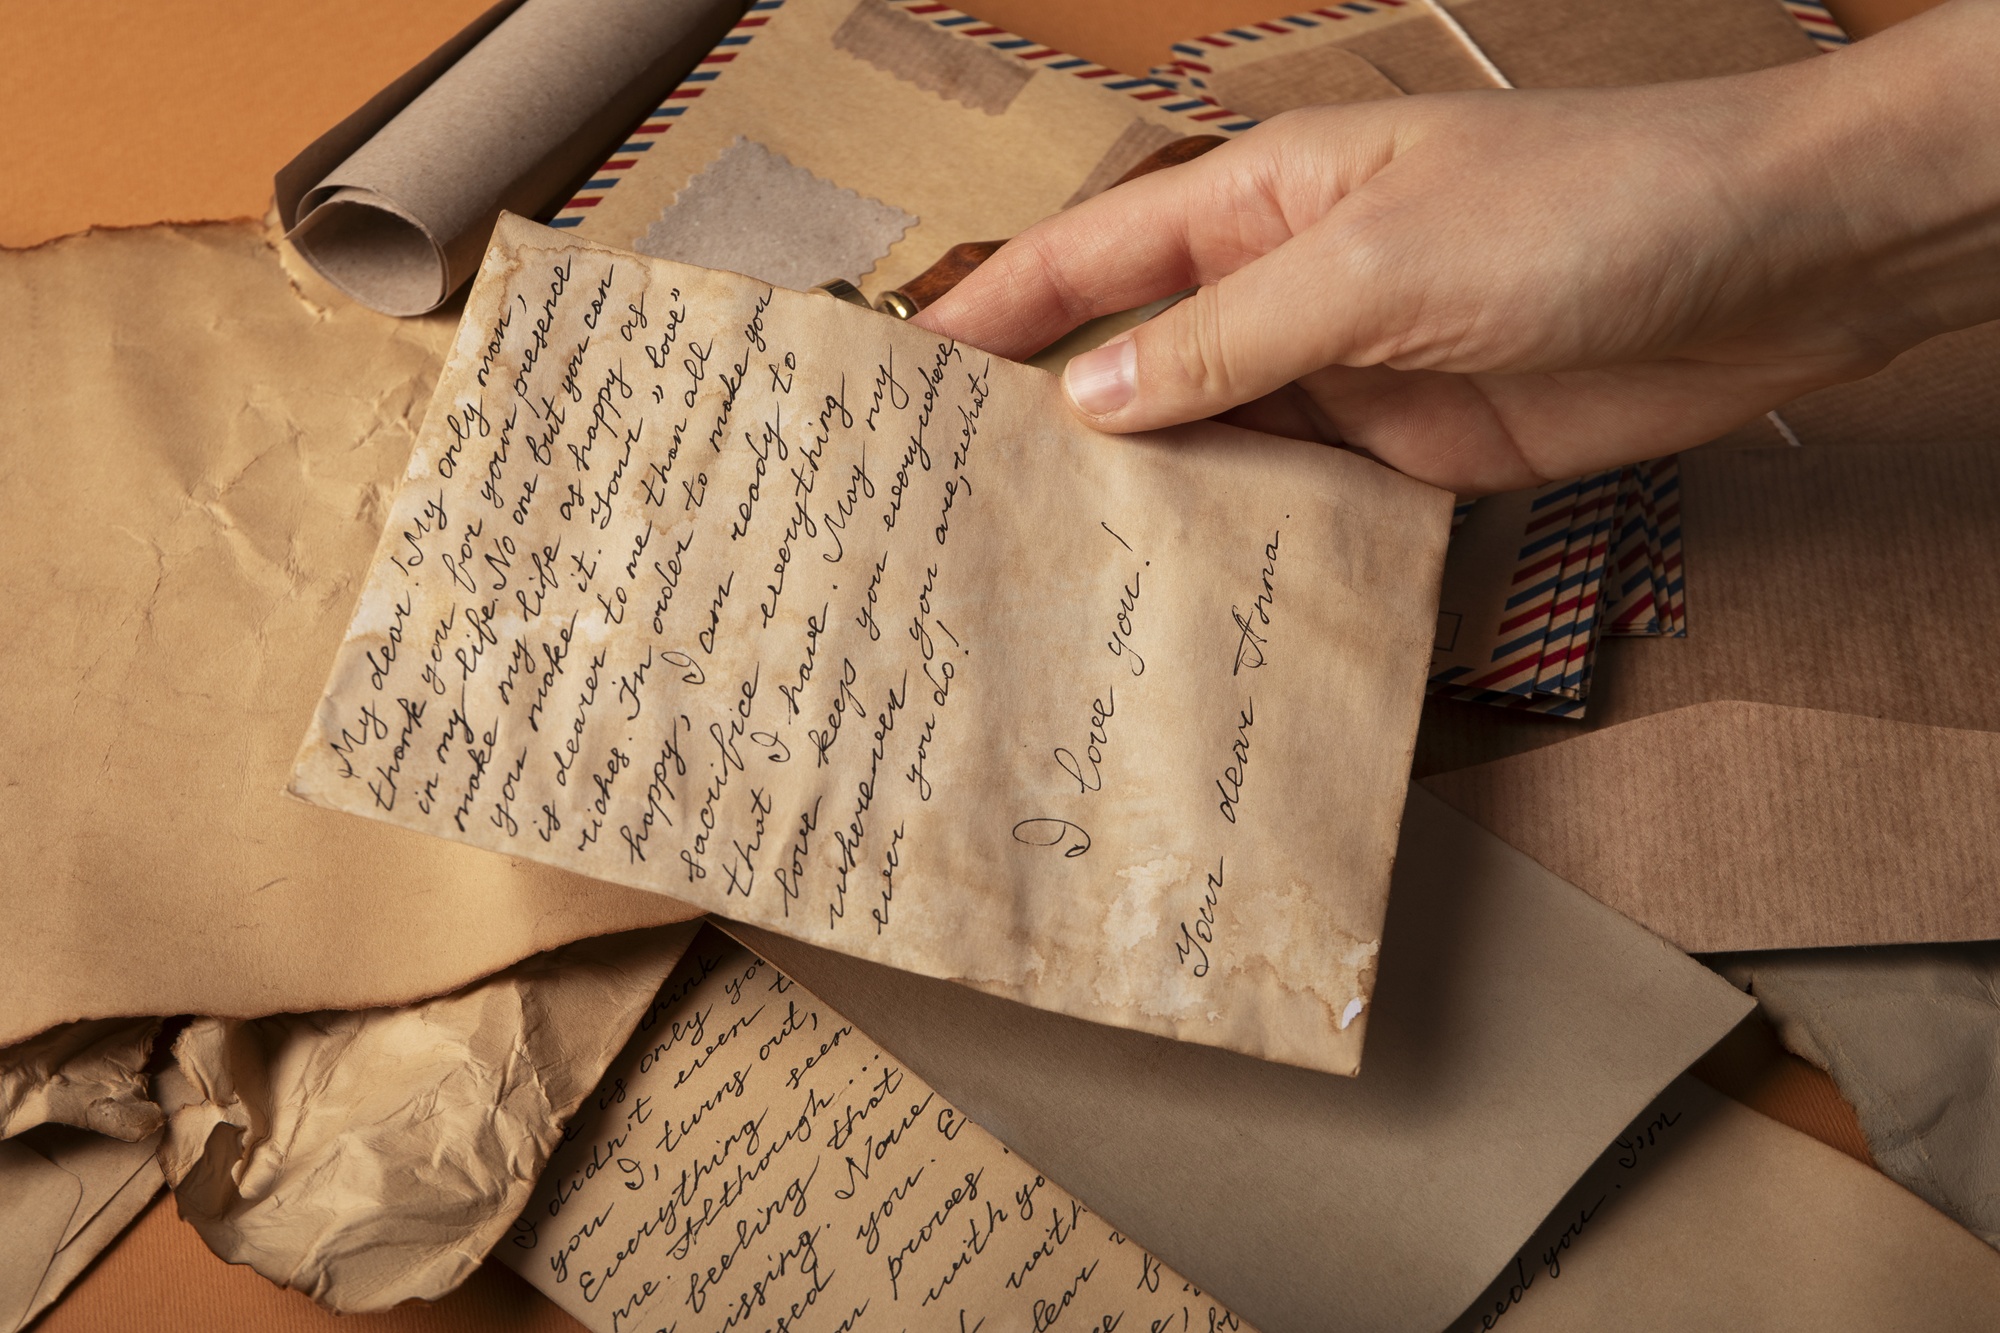 My dear! My only man,
thank you for your presence
in my life. No one but you can
make my life as happy as
you make it. Your „love”
is dearer to me than all
riches. In order to make you
happy, I am ready to
sacrifice everything
that I have. May my
love keep you everywhere,
wherewer you are, what-
ever you do!
I love you!
Your dear Anna.
think
is only you
I didn't even
you I, turns out,
Everything seen
me. Although...
feeling that
missing. None
you. E
proves
with yo
with
dear
need you. I'm